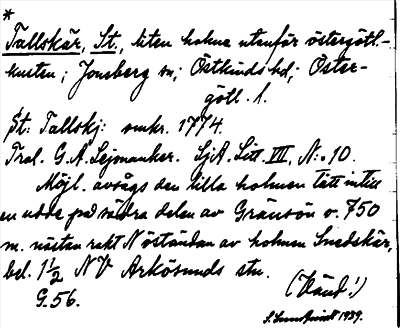 *
Tallskär, St., liten holme utanför östergötl.-
kusten; Jonsberg sn; Östkinds hd; Öster-
götl. l.
St. Tallskj: omkr. 1774.
Tral. G.A. Lejmanker. SjA. Litt. VII, N:o 10.
Möjl. avsågs den lilla holmen tätt intill
en udde på södra delen av Gränsön o. 750
m. nästan rakt N öständan av holmen Snedskär,
bel. 1½ NV Arkösunds stn.
G. 56. (Känd!)
1939.